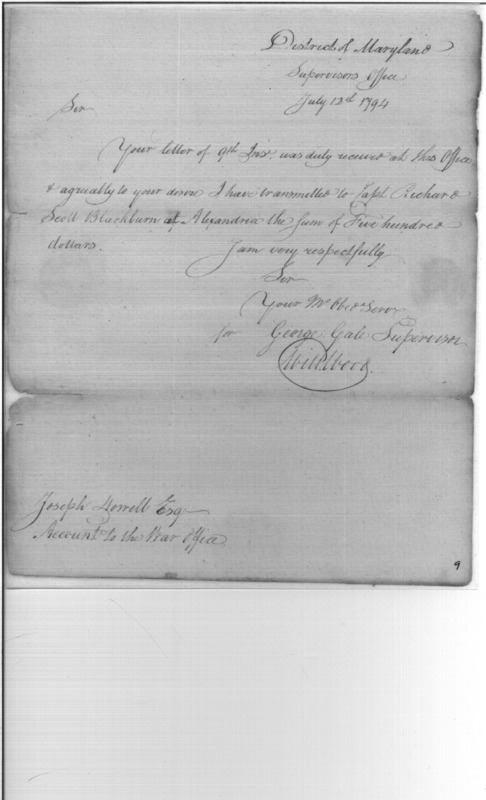 District of Maryland
Supervisors Office
July 12th 1794
Sir
Your letter of 9th Inst. was duly received at this Office
& agreeably to your desire I have transmitted to Capt. Richard
Scott Blackburn at Alexandria the sum of Five hundred
dollars.
I am very respectfully
Sir
Your Mo Obed Serv
for George Gale Supervisor
Joseph Howell Esqr
Account to the War Office
9